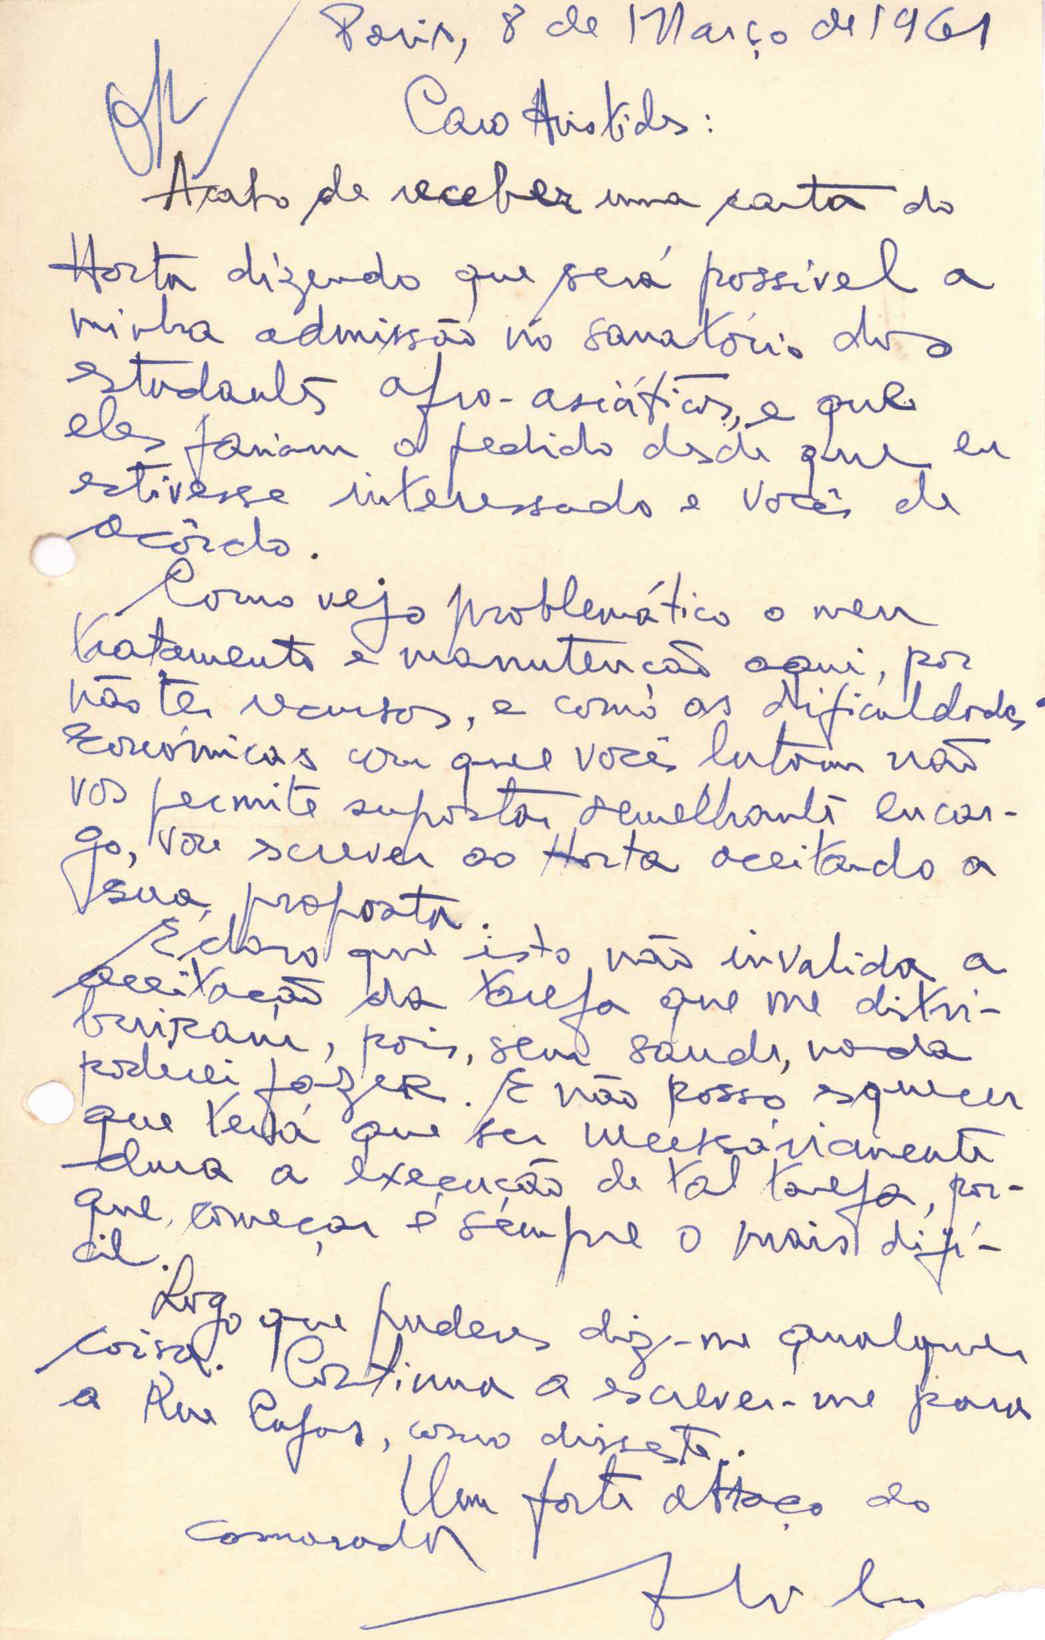 Paris, 8 de Março de 1961
Caro Aristides:
Acabo de receber uma carta do
Horta dizendo que será possível a
minha admissão no sanatório dos
estudantes afro-asiáticos, e que
eles fariam o pedido desde que eu
estivesse interessado e vocês de
acôrdo.
Como vejo problemático o meu
tratamento e manutenção aqui, por
não ter recursos, e como as dificuldades
económicas com que vocês lutam não
vos permite suportar semelhante encar-
go, vou escrever ao Horta aceitando a
sua proposta.
É claro que isto não invalida a
aceitação da tarefa que me distri-
buiram, pois, sem saude, nada
poderei fazer. E não posso esquecer
que terá que ser necessáriamente
dura a execução de tal tarefa, por-
que, começar é sempre o mais difí-
cil.
Logo que puderes diz-me qualquer
coisa. Continua a escrever-me para
a Rue Cujas, como disseste.
Um forte abraço do
camarada